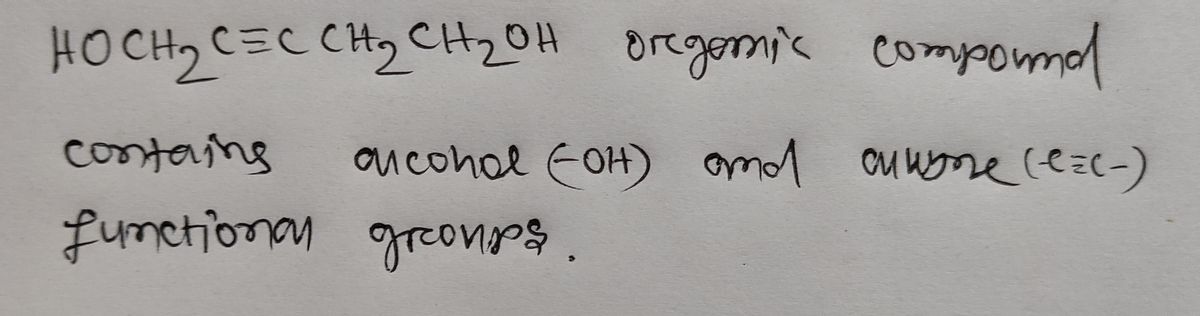 HOCH₂C≡CCH₂CH₂OH organic compound
contains alcohol (-OH) and alkyne (-C≡C-)
functional groups.